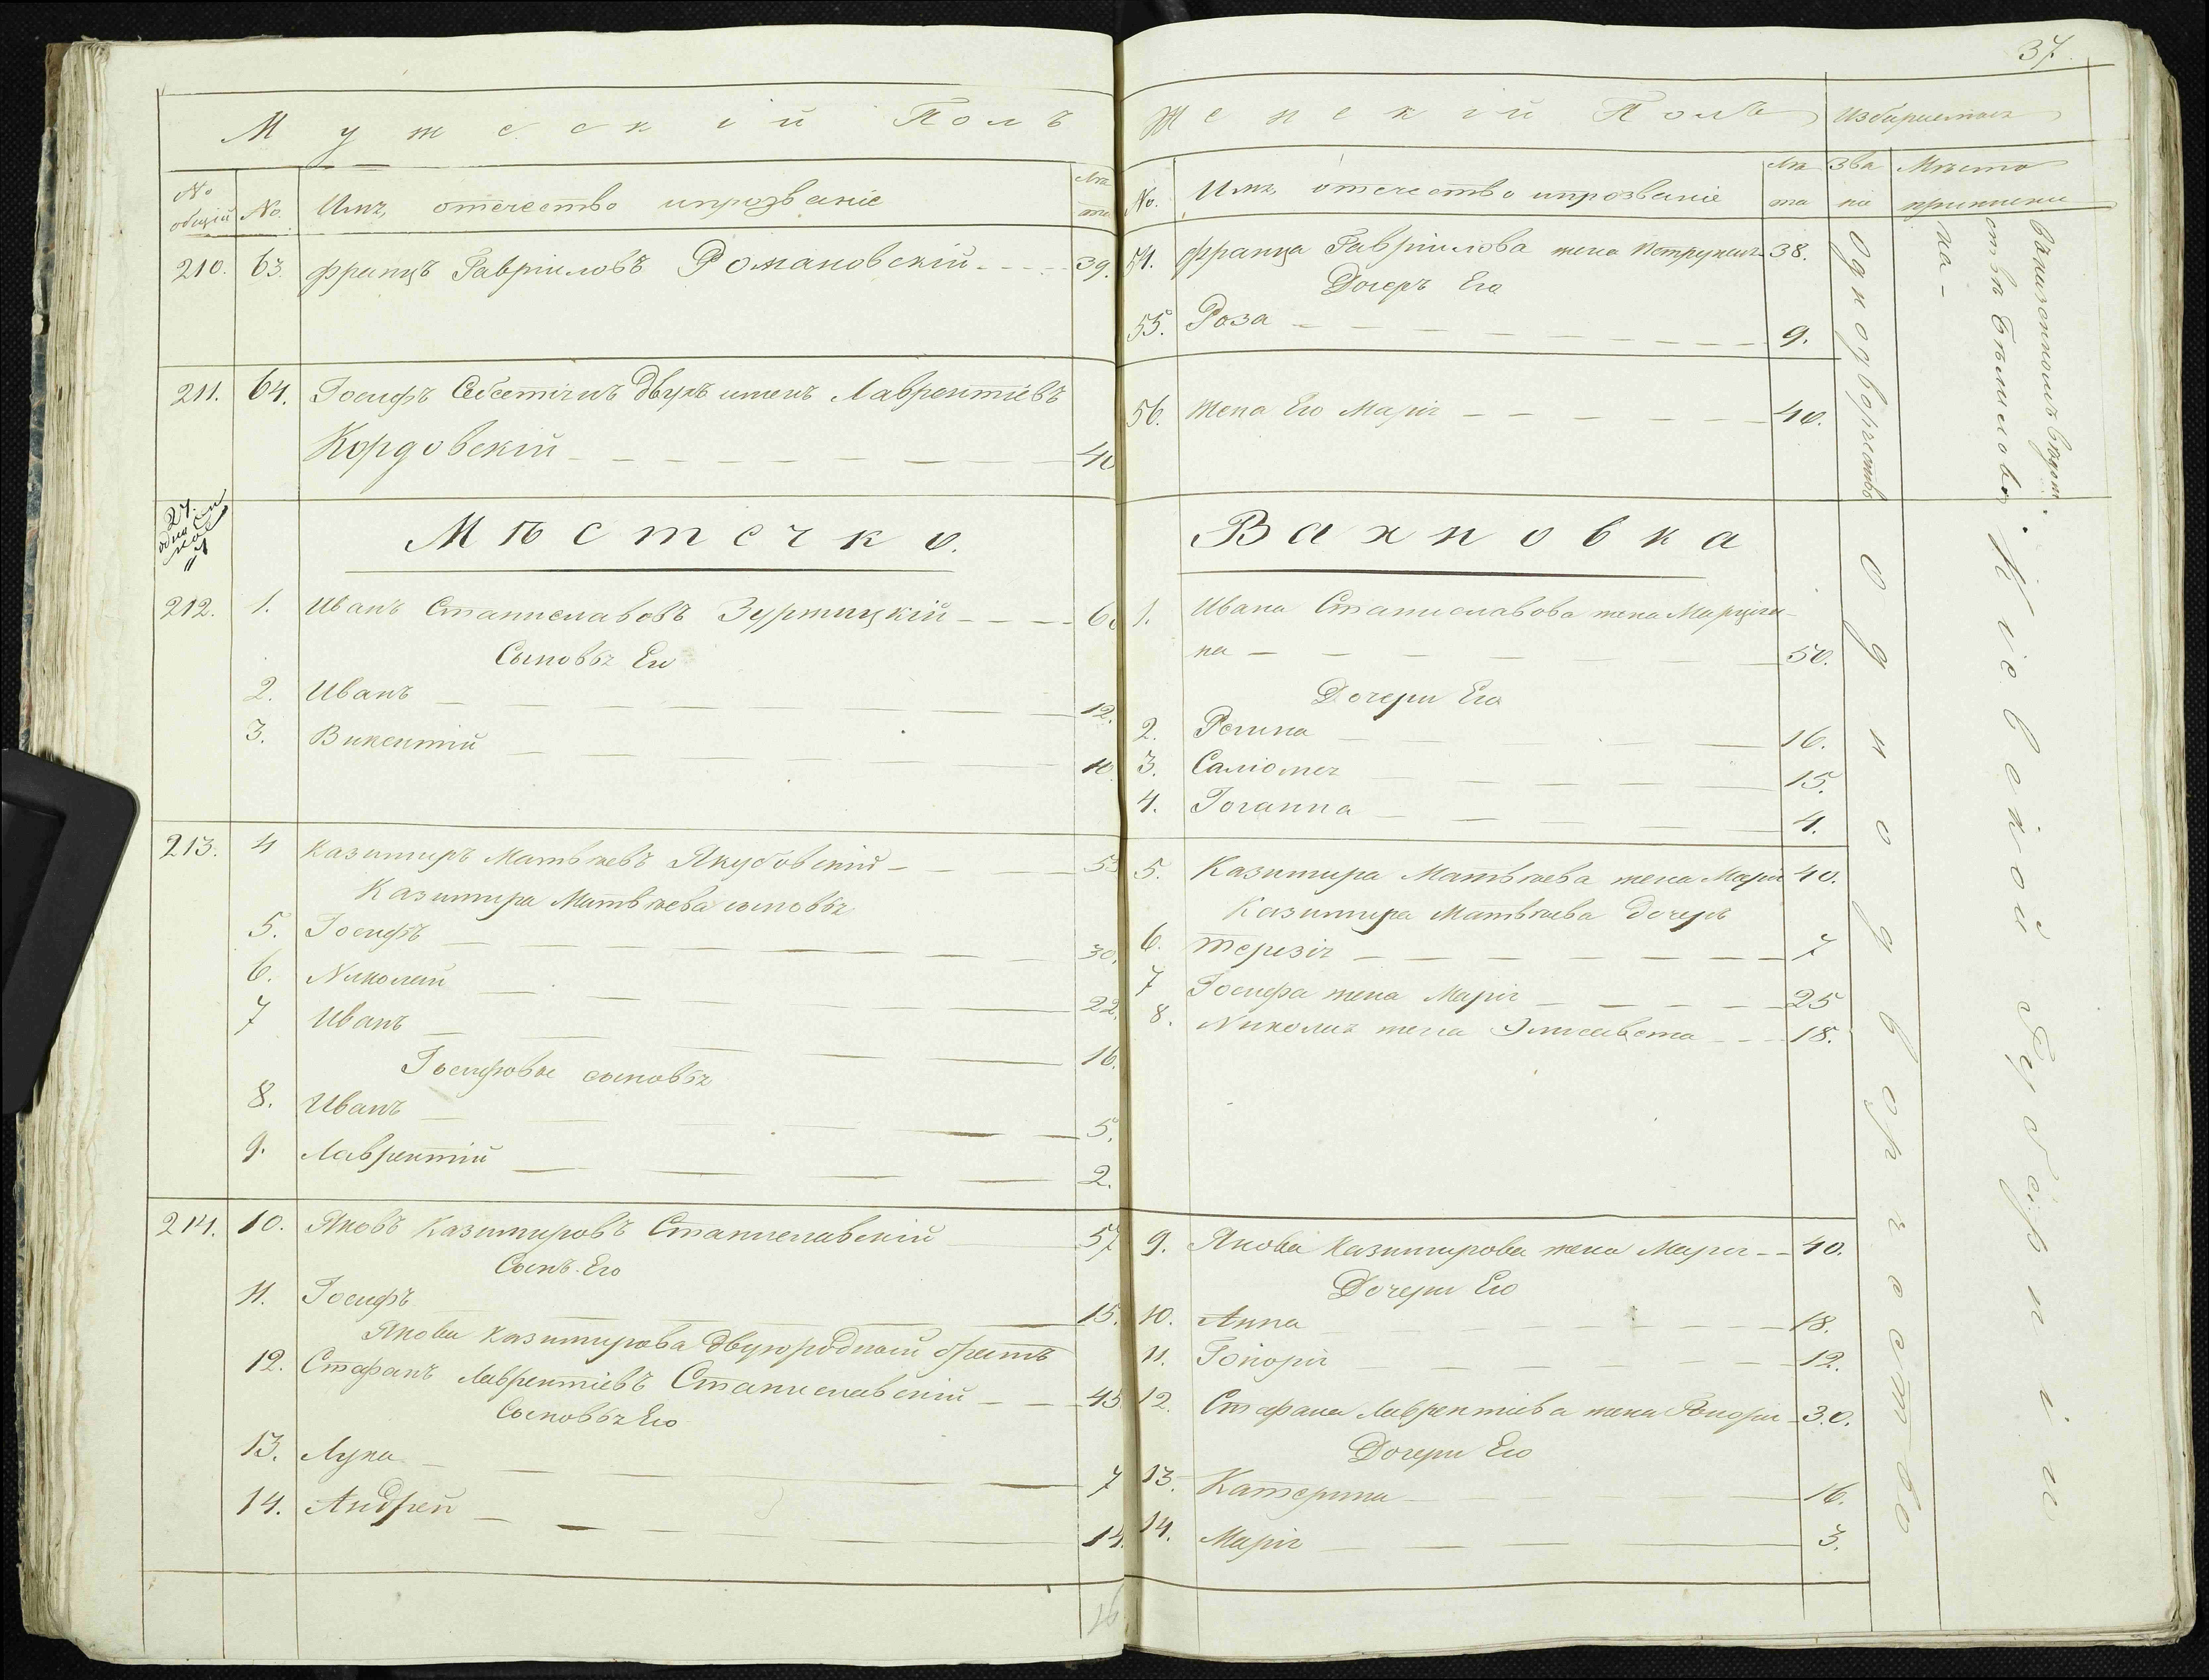 37.
Мужескій Полъ
№ общій
№
Имя, отчество ипрозваніе
Лѣта
210. 63. Францъ Гавріиловъ Романовскій 39.
211. 64. Іосифъ Себестіянъ двухъ именъ Лаврентіевъ
Кордовскій 40
Мѣстечко.
212. 1. Иванъ Станиславовъ 60
Сыновья Его
2. Иванъ 12.
3. Викентій 10.
213. 4 Казимиръ Матвѣевъ Якубовскій 53
Казимира Матвѣева сыновья
5. Іосифъ 30.
6. Николай 22.
7 Иванъ 16.
Іосифовы сыновья
8. Иванъ 5.
9. Лаврентій 2.
214. 10. Яковъ Казимировъ Станиславскій 57
Сынъ Его
11. Іосифъ 15.
Якова Казимирова двуюродный братъ
12. Стафанъ Лаврентіевъ Станиславскій 45
Сыновья Его
13. Лука 7
14. Андрей 14.
Женскій Полъ
Избираемыя
№
Имя, отчество ипрозваніе
Лѣта
Званіе
Мѣсто приписки
54. Франца Гавріилова жена 38.
Дочерь Его
55. Роза 9.
56. Жена Его Марія 40.
Вахновка
1. Ивана Станиславова жена Марціянна 50.
Дочери Его
2. Регина 16.
3. Саліомея 15.
4. Іоганна 4.
5. Казимира Матвѣева жена Марія 40.
Казимира Матвѣева дочерь
6. Терезія 7
7 Іосифа жена Марія 25
8. Николая жена Элисавета 18.
9. Якова Казимирова жена Марія 40.
Дочери Его
10. Анна 18.
11. Гонорія 12.
12. Стафана Лаврентіева жена 30.
Дочери Его
13. Катерина 16.
14. Марія 3.
Однодворчество
Однодворчество
Кіевской Губерніи